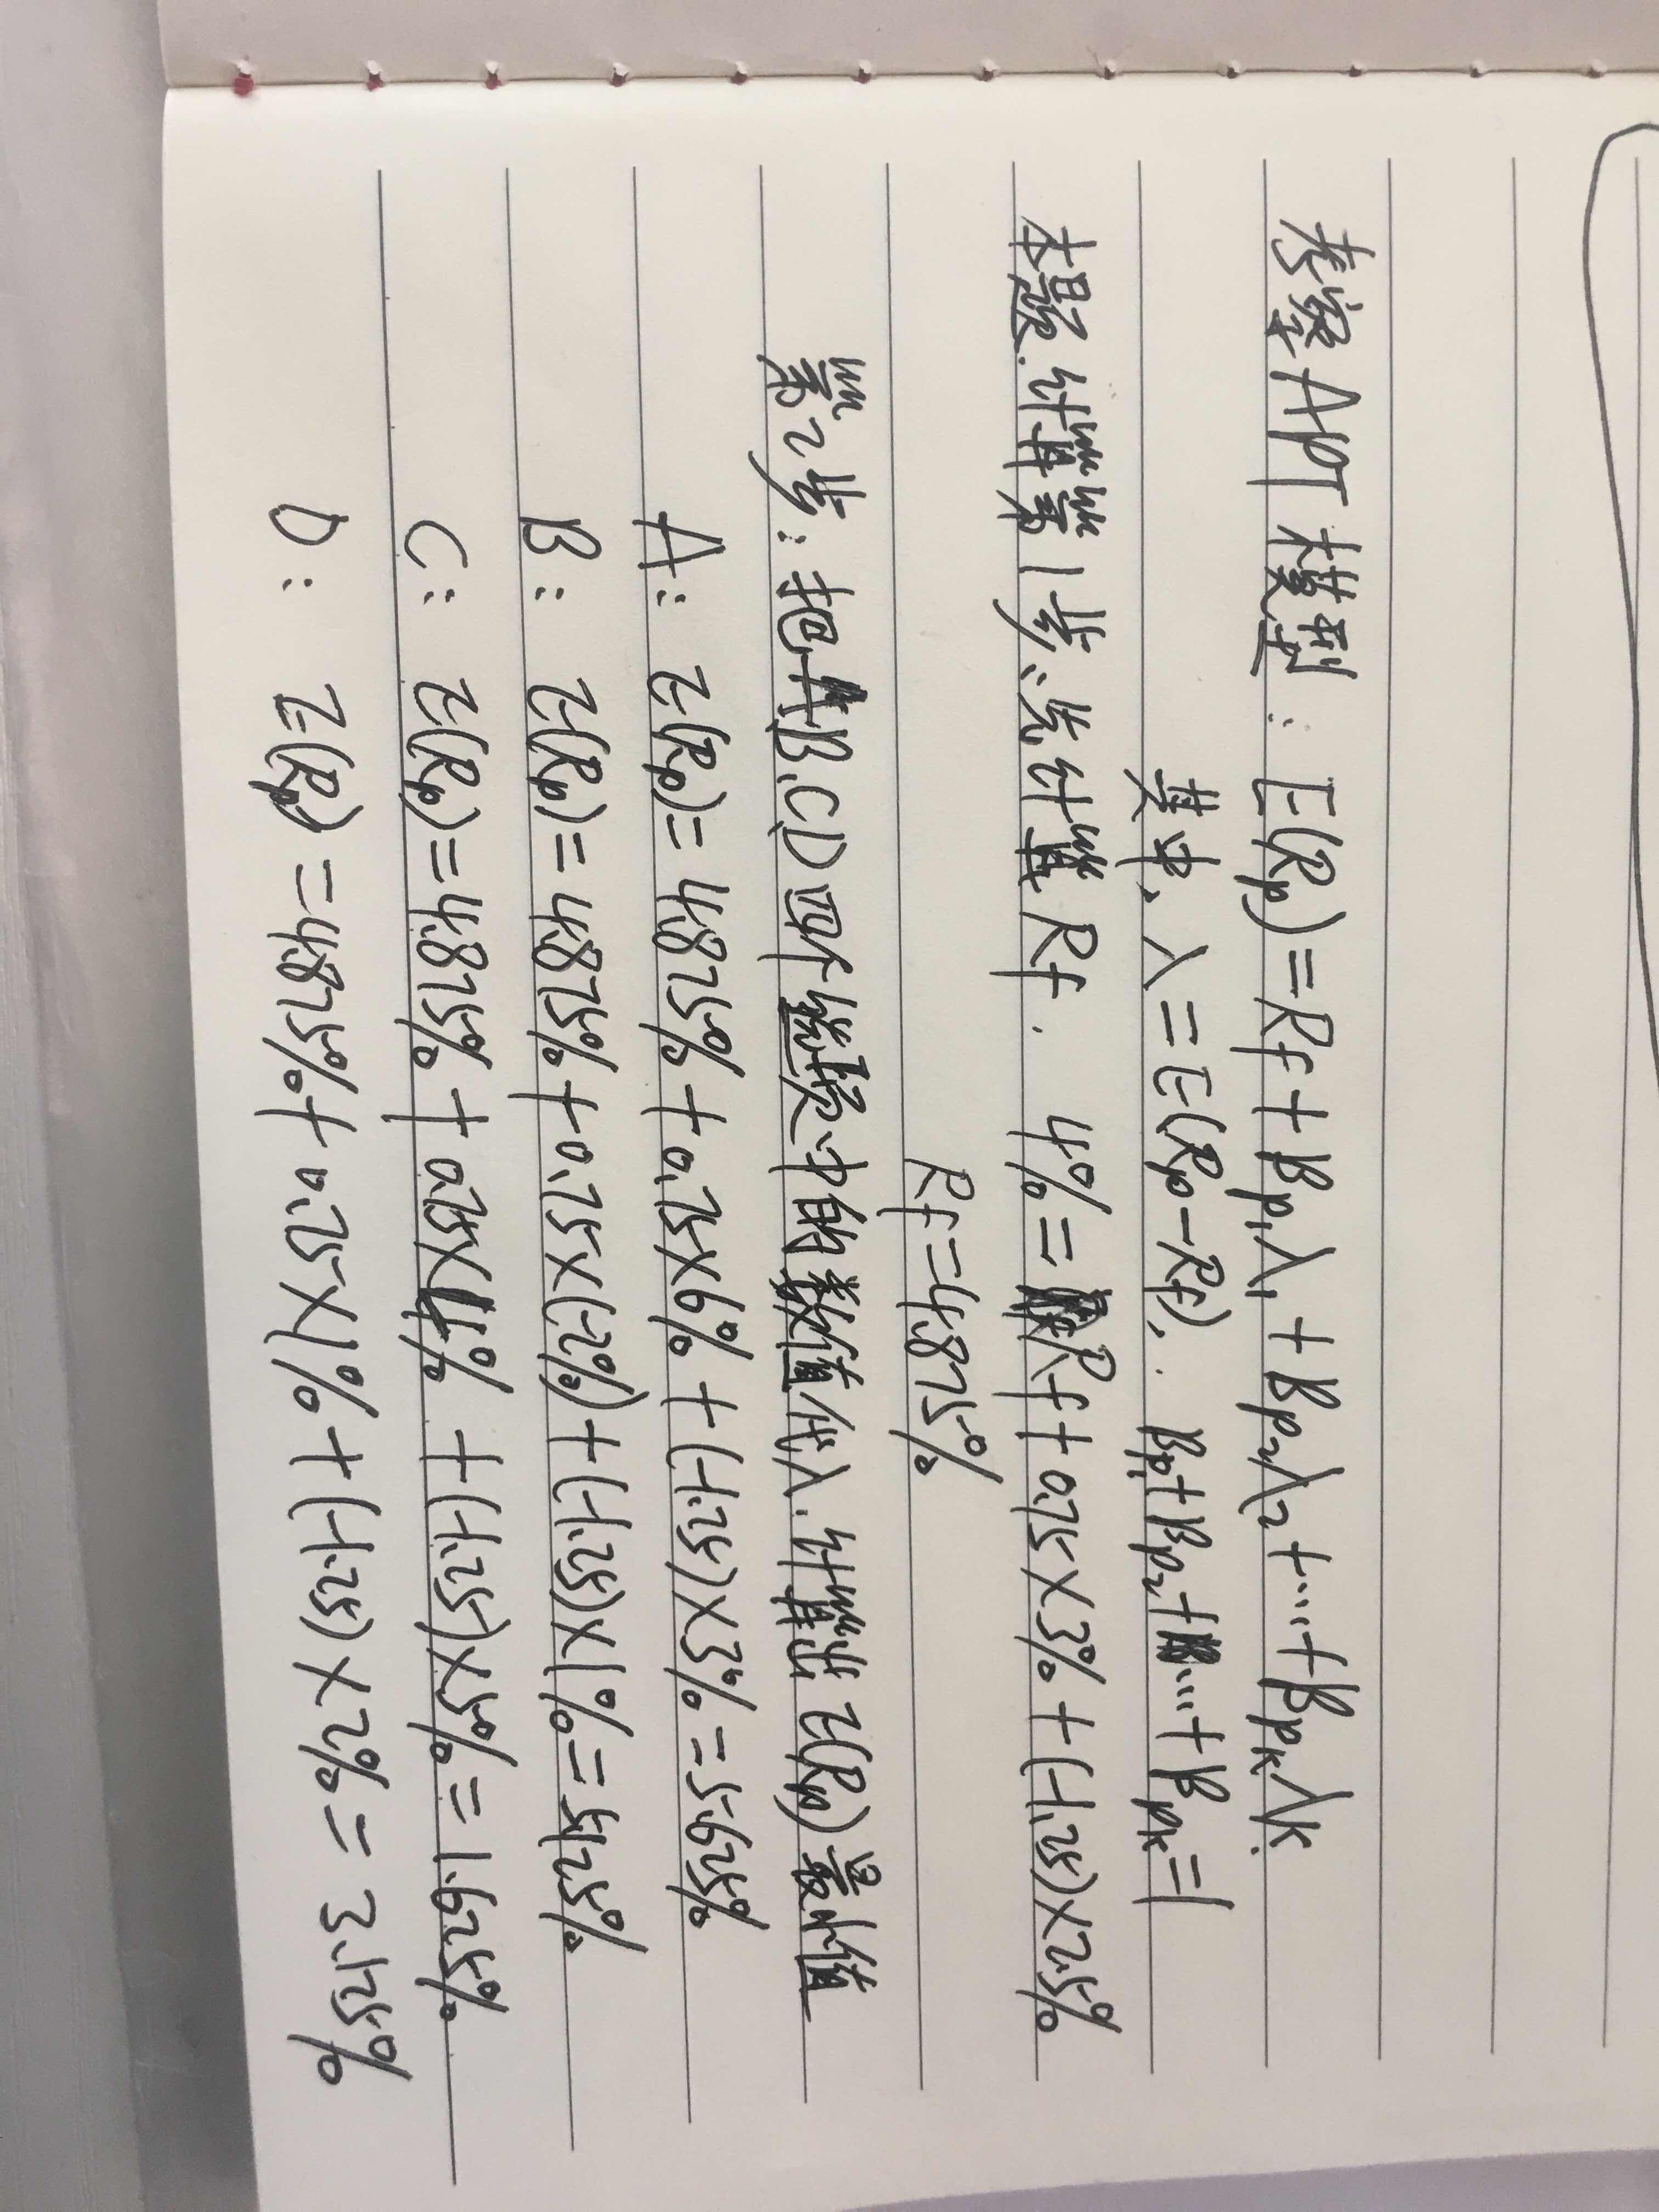 考察APT模型：E(Rp)=Rf+βp1λ1+βp2λ2+…+βpkλk
其中，λ=E(Rp-Rf)， βp1+βp2+…+βpk=1
本题计算第1步、先计算Rf. 4%=Rf+0.75×3%+(-1.25)×2.5%
Rf=4.875%
第2步：把A.B.CD四个结果中的数值代入.计算出E(Rp)最小值
A：E(Rp)=4.875%+0.75×6%+(-1.25)×3%=5.625%
B：E(Rp)=4.875%+0.75×(-2%)+(-1.25)×1%=2.125%
C：E(Rp)=4.875%+0.75×4%+(-1.25)×5%=1.625%
D：E(Rp)=4.875%+0.75×1%+(-1.25)×2%=3.125%